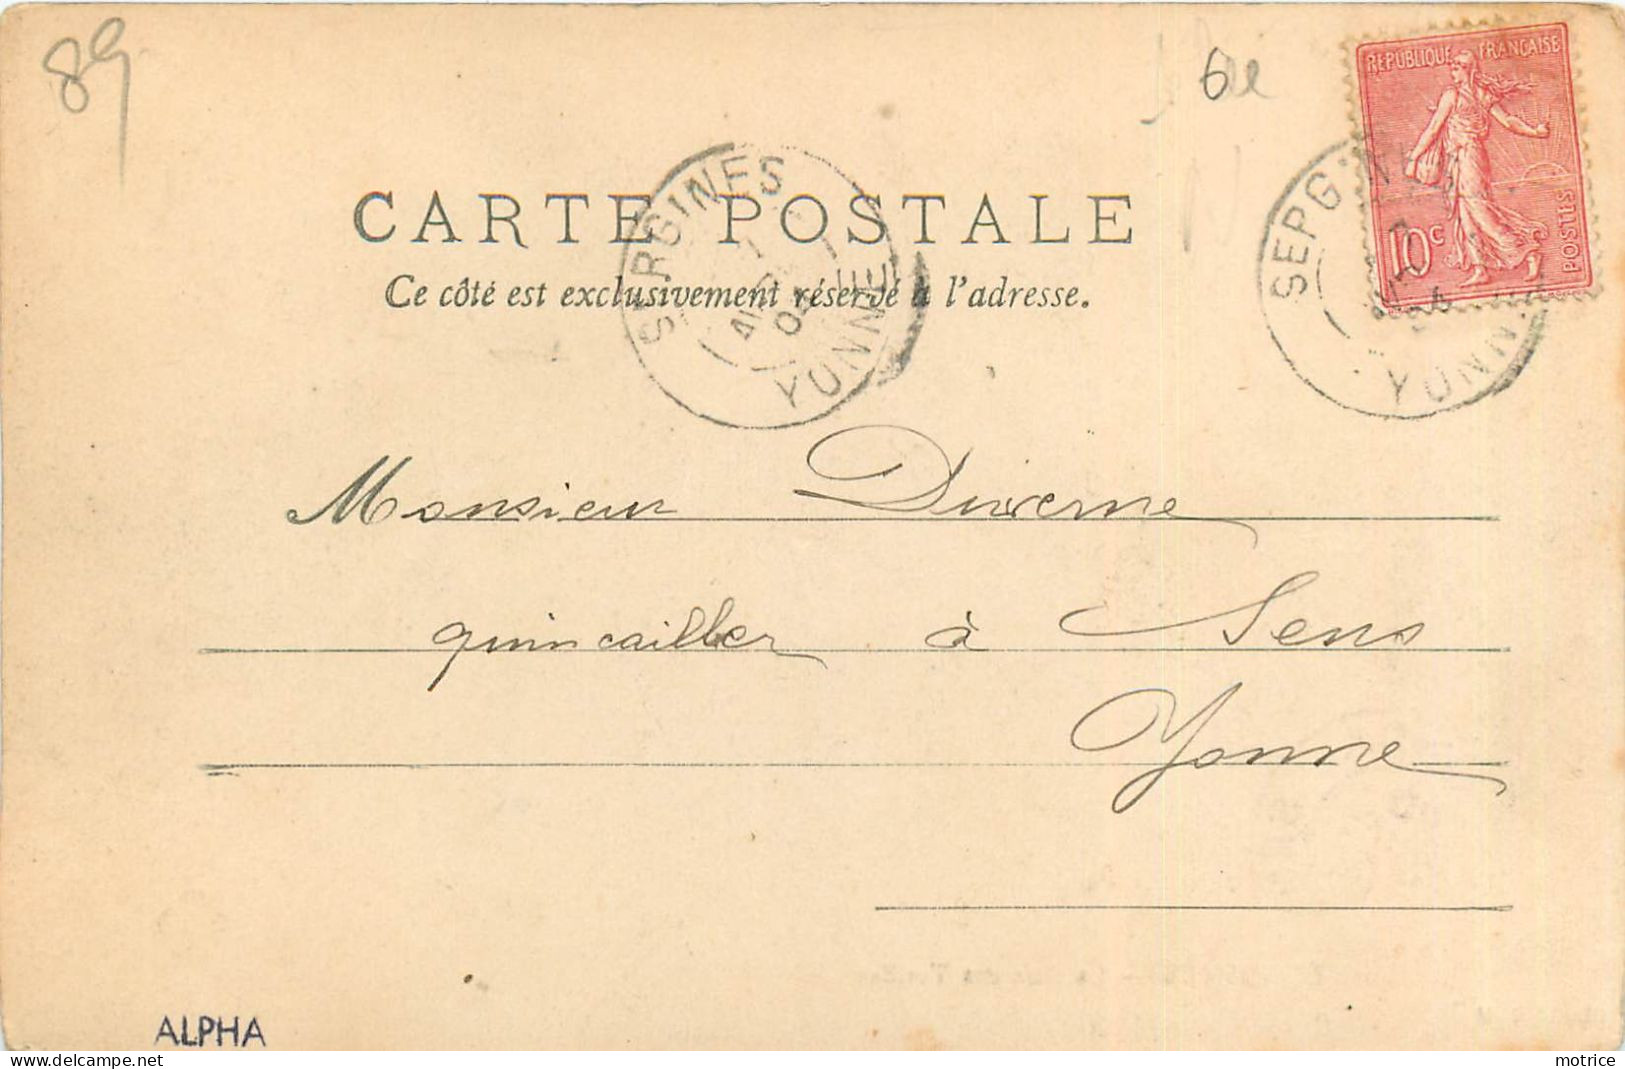 89
6e
RÉPUBLIQUE FRANÇAISE
10c
POSTES
SERGINES
YONNE
SERGINES
04
YONNE
CARTE POSTALE
Ce côté est exclusivement réservé à l'adresse.
Monsieur Duverne
quincailler à Sens
Yonne
ALPHA
delcampe.net
motrice